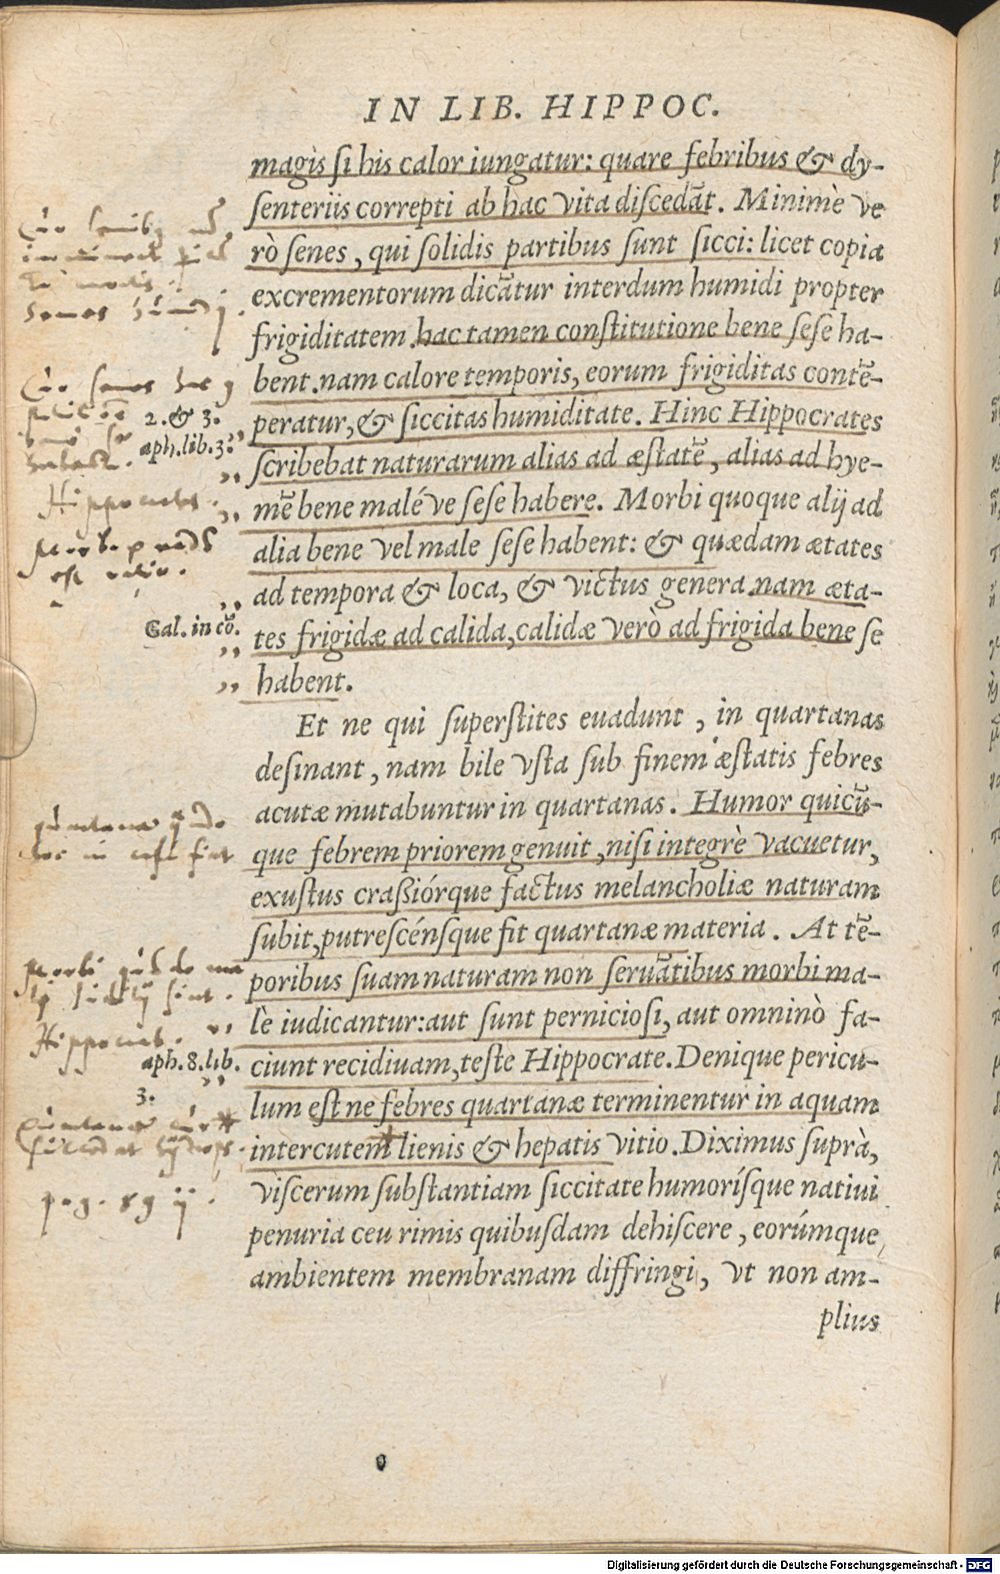 IN LIB. HIPPOC.
magis ſi his calor iungatur: quare febribus & dy-
ſenteriis correpti ab hac vita diſcedāt. Minimè ve
rò ſenes, qui ſolidis partibus ſunt ſicci: licet copia
excrementorum dicātur interdum humidi propter
frigiditatem. hac tamen conſtitutione bene ſeſe ha-
bent. nam calore temporis, eorum frigiditas contē-
peratur, & ſiccitas humiditate. Hinc Hippocrates
2. & 3.
aph. lib. 3.
ſcribebat naturarum alias ad æſtatē, alias ad hye-
mē bene malé ve ſeſe habere. Morbi quoque alij ad
Hippocrates
alia bene vel male ſeſe habent: & quædam ætates
ad tempora & loca, & victus genera. nam æta-
Gal. in cō.
tes frigidæ ad calida, calidæ verò ad frigida bene ſe
habent.
Et ne qui ſuperſtites euadunt, in quartanas
deſinant, nam bile vſta ſub finem æſtatis febres
acutæ mutabuntur in quartanas. Humor quicū-
que febrem priorem genuit, niſi integrè vacuetur,
exuſtus craßiórque factus melancholiæ naturam
ſubit, putreſcénſque fit quartanæ materia. At tē-
poribus ſuam naturam non ſeruātibus morbi ma-
lè iudicantur: aut ſunt pernicioſi, aut omninò fa-
aph. 8. lib.
3.
ciunt recidiuam, teſte Hippocrate. Denique pericu-
lum eſt ne febres quartanæ terminentur in aquam
intercutem lienis & hepatis vitio. Diximus ſuprà,
viſcerum ſubſtantiam ſiccitate humoríſque natiui
penuria ceu rimis quibuſdam dehiſcere, eorúmque
ambientem membranam diffringi, vt non am-
plius
Digitalisierung gefördert durch die Deutsche Forschungsgemeinschaft - DFG